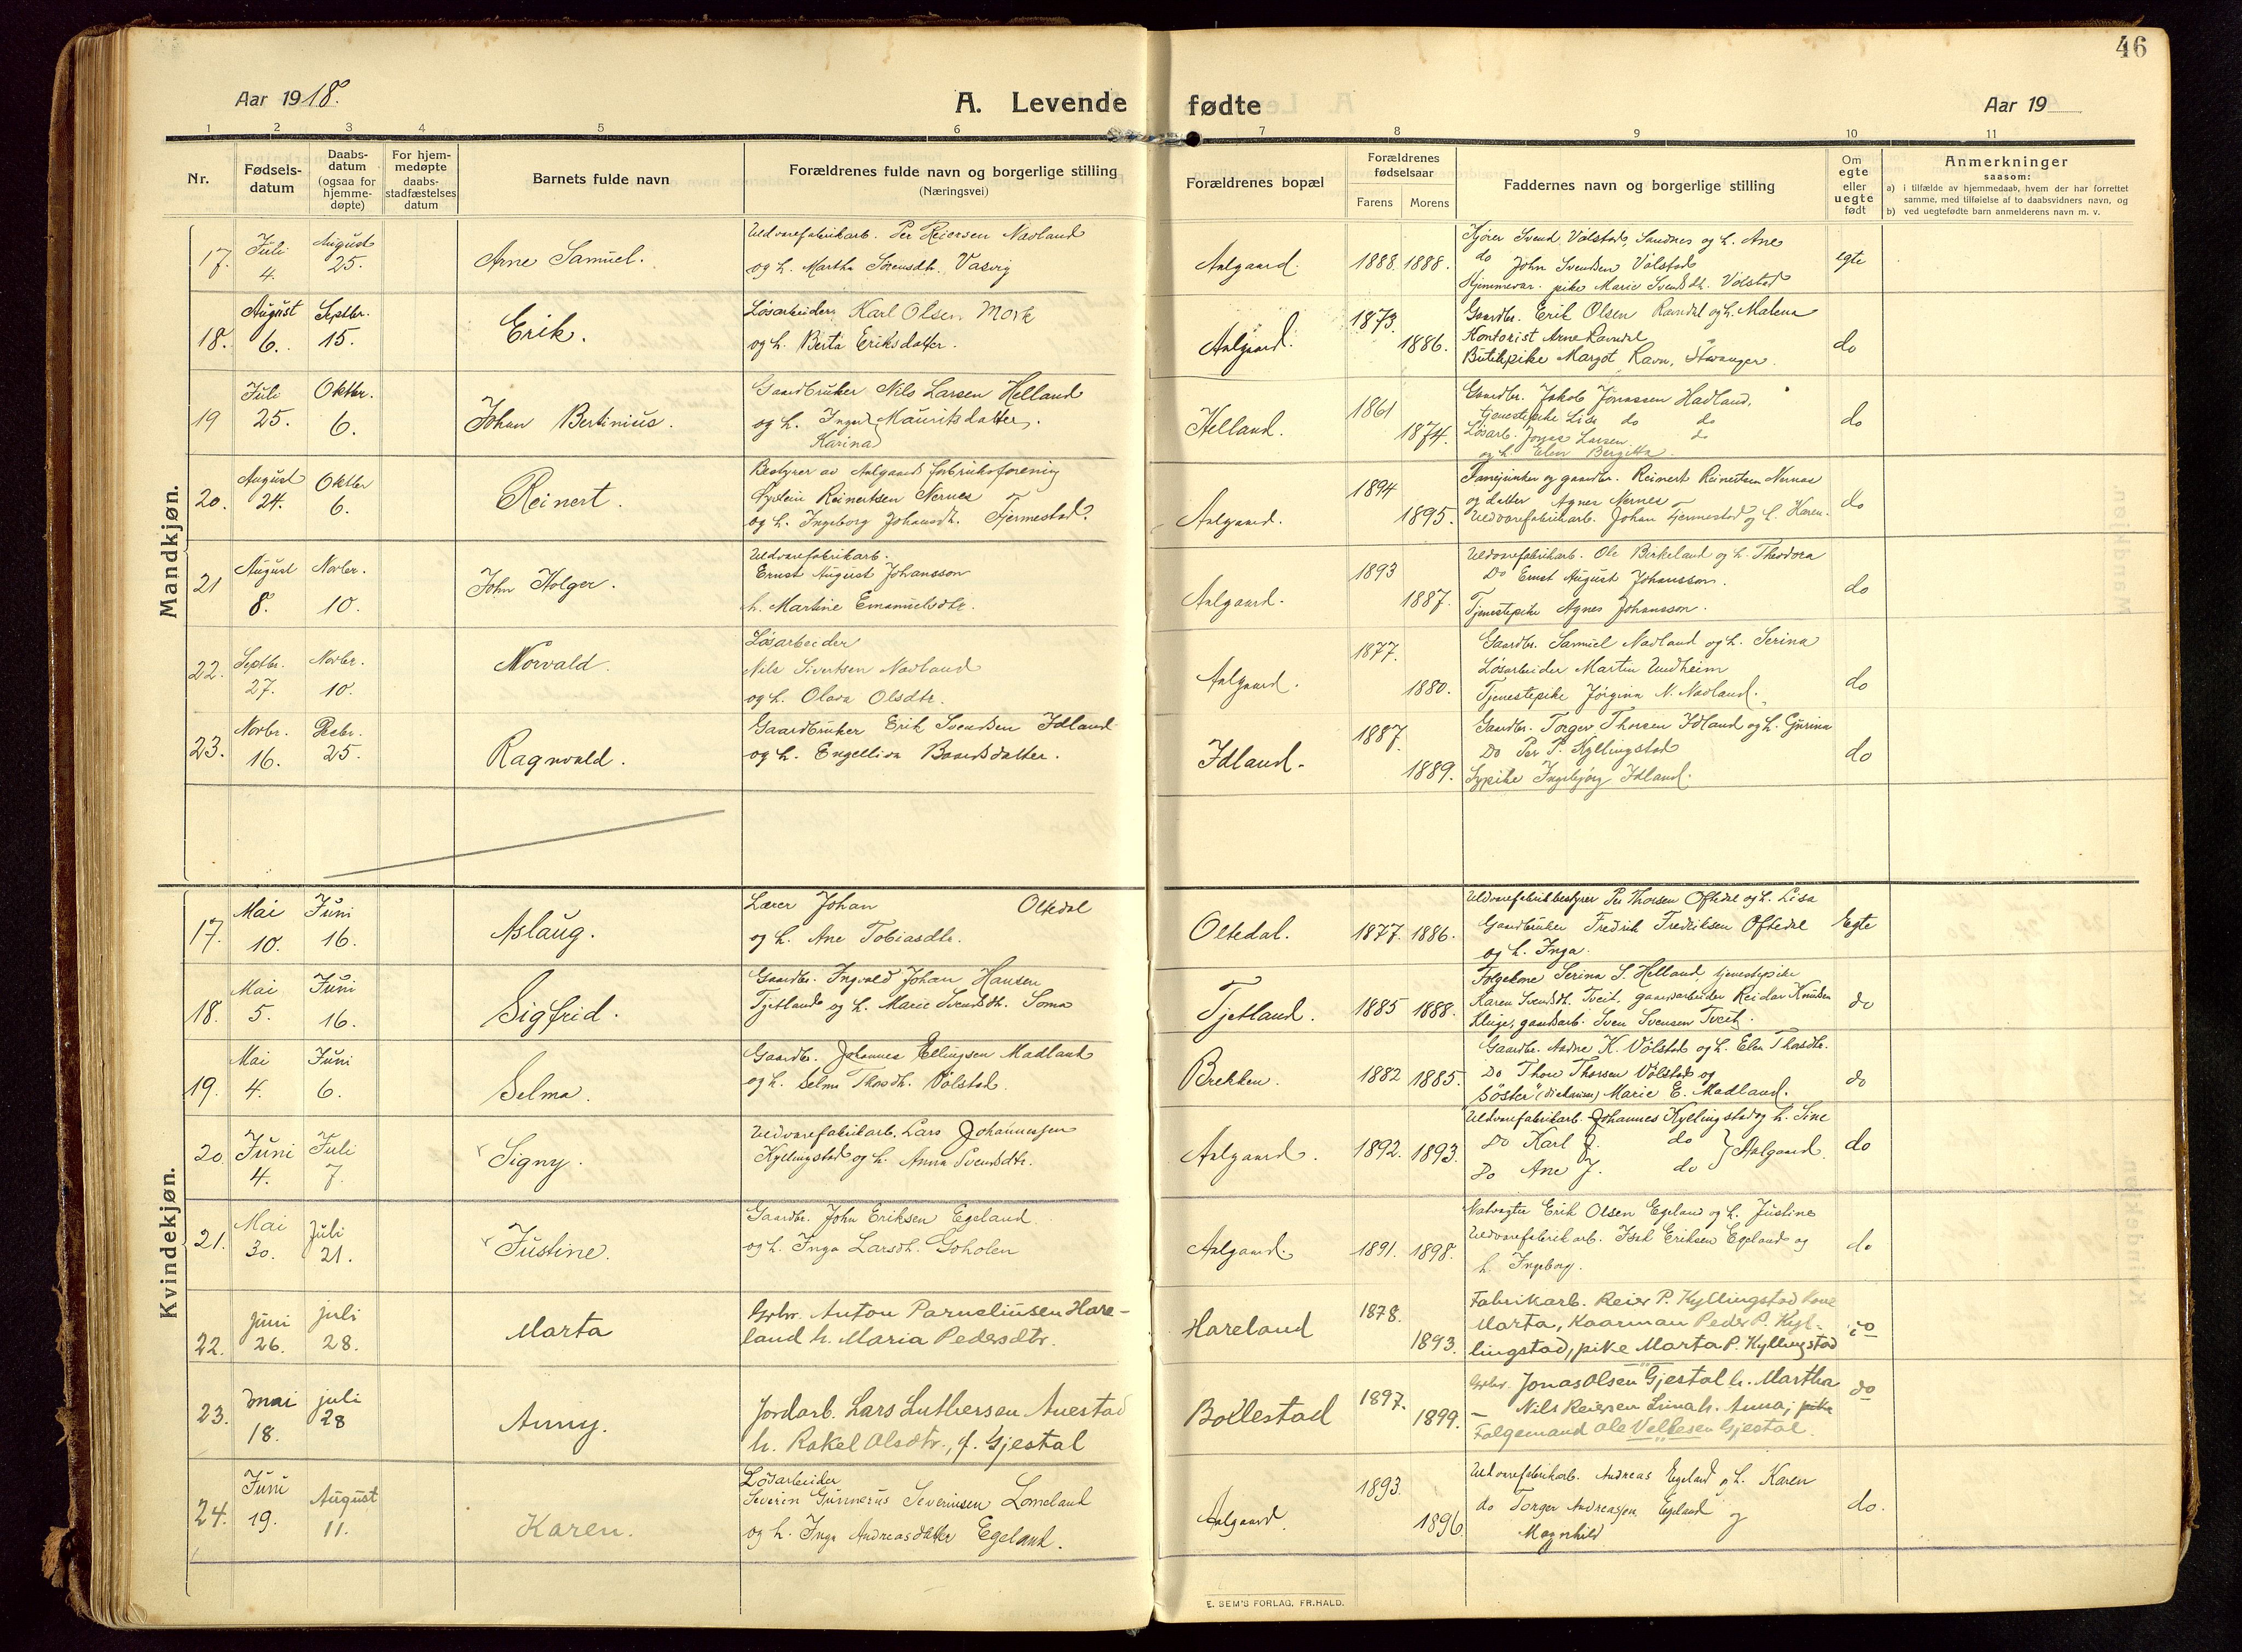 46
Aar 1918.
A. Levende fødte
Aar 19
1 2 3 4 5 6 7 8 9 10 11
Nr.
Fødsels-
datum
Daabs-
datum
(ogsaa for
hjemme-
døpte)
For hjem-
medøpte
daabs-
stadfæstelses
datum
Barnets fulde navn
Forældrenes fulde navn og borgerlige stilling
(Næringsvei)
Forældrenes bopæl
Forældrenes
fødselsaar
Farens Morens
Faddernes navn og borgerlige stilling
Om
egte
eller
uegte
født
Anmerkninger
saasom:
a) i tilfælde av hjemmedaab, hvem der har forrettet
samme, med tilføielse af to daabsvidners navn, og
b) ved uegtefødte barn anmelderens navn m. v.
Mandkjøn.
17. Juli 4. August 25.
Arne Samuel.
Uldvarefabrikarb. Per Reiersen Navland
og h. Martha Sørensdtr. Vasvig
Aalgaard. 1888. 1888.
Kjører Svend Volstad, Sandnes og h. Ane
do John Svendsen Volstad
Hjemmevær. pike Marie Svendsdtr. Volstad
egte
18. August 6. Septbr. 15.
Erik.
Løsarbeider Karl Olsen Mork
og h. Berta Eriksdatter.
Aalgaard. 1873. 1886.
Gaardbr. Erik Olsen Ravndal og h. Malena
Kontorist Arne Ravndal
Butikpike Margot Ravn, Stavanger.
do
19 Juli 25. Oktbr. 6.
Johan Bertinius.
Gaardbruker Nils Larsen Helland
og h. Inger Mauritsdatter.
Karina
Helland. 1861 1874.
Gaardbr. Jakob Jonassen Hadland,
tjenestepike Lisa do do
Løsarb. Jonas Larsen do
og h. Elen Bergitta.
do
20. August 24. Oktbr 6.
Reinert.
Bestyrer av Aalgaards forbruksforening
Øystein Reinertsen Nernes
og h. Ingeborg Johansdtr. Tjermestad.
Aalgaard. 1894 1895.
Fanejunker og gaardbr. Reinert Reinertsen Nernes
og datter Agnes Nernes
Uldvarefabrikarb. Johan Tjermestad og h. Karen.
do
21 August 8. Novbr. 10.
John Holger.
Uldvarefabrikarb.
Ernst August Johansson
h. Martine Emanuelsdtr.
Aalgaard. 1893 1887.
Uldvarefabrikarb. Ole Birkeland og h. Theodora
Do Ernst August Johansson.
Tjenestepike Agnes Johansson.
do
22. Septbr. 27. Novbr. 10.
Norvald.
Løsarbeider
Nils Sivertsen Navland
og h. Olava Olsdtr.
Aalgaard. 1877. 1880.
Gaardbr. Samuel Navland og h. Serina
Løsarbeider Martin Undheim
Tjenestepike Jørgina N. Navland.
do
23. Novbr. 16. Decbr. 25.
Ragnvald.
Gaardbruker Erik Svendsen Idland
og h. Engelliva Baardsdatter.
Idland. 1887. 1889.
Gaardbr. Torger Thorsen Idland og h. Gurina
Do Per P. Kyllingstad
Sypike Ingebjørg Idland.
do
Kvindekjøn.
17. Mai 10. Juni 16.
Aslaug.
Lærer Johan Oltedal
og h. Ane Tobiasdtr.
Oltedal. 1877. 1886.
Uldvarefabrikbestyrer Per Thorsen Oftedal og h. Lisa
Gaardbruker Fredrik Fredriksen Oftedal
og h. Inga.
Egte
18. Mai 5. Juni 16.
Sigfrid.
Gaardbr. Ingvald Johan Hansen
Tjetland og h. Marie Svendsdtr. Soma
Tjetland. 1885 1888.
Følgekone Serina S. Helland tjenestepike
Karen Svendsdtr. Tveit, gaardsarbeider Reidar Knudsen
Kluge, gaardsarb. Sven Svensen Tveit.
do
19. Mai 4. Juni 6.
Selma.
Gaardbr. Johannes Ellingsen Madland
og h. Selma Thorsdtr. Volstad.
Brekken. 1882 1885.
Gaardbr. Andre K. Volstad og h. Elen Thorsdtr.
Do Thore Thorsen Volstad og
"søster" Marie E. Madland.
do
20. Juni 4. Juli 7.
Signy.
Uldvarefabrikarb. Lars Johannesen
Kyllingstad og h. Anna Svendsdtr.
Aalgaard. 1892. 1893.
Uldvarefabrikarb. Johannes Kyllingstad og h. Sine
Do Karl J. do } Aalgaard.
Do Ane J. do
do
21. Mai 30. Juli 21.
Justine.
Gaardbr. John Eriksen Egeland
og h. Inga Larsdtr. Goholen
Aalgaard. 1891. 1898.
Natvagter Erik Olsen Egeland og h. Justine
Uldvarefabrikarb. Isak Eriksen Egeland og
h. Ingeborg.
do
22. juni 26. juli 28.
Marta
Grbr. Anton Parneliusen Hare-
land h. Maria Pedersdtr.
Hareland 1878. 1893.
Fabrikarb. Reier P. Kyllingstad kone
Marta, Kaarmann Peder P. Kyl-
lingstad, pike Marta P. Kyllingstad
do
23. mai 18. juli 28
Anny.
Jordarb. Lars Luthersen Auestad
h. Rakel Olsdtr., f. Gjestal
Bollestad 1897. 1899.
Grbr. Jonas Olsen Gjestal h. Martha
— Nils Reiersen Lima h. Anna; pike
Følgemand Ole Vellesen Gjestal.
do
24. Juni 19. August 11.
Karen.
Løsarbeider
Severin Gunnerus Severinsen Lomeland
og h. Inga Andreasdatter Egeland.
Aalgaard. 1893. 1896.
Uldvarefabrikarb. Andreas Egeland og h. Karen
do Torger Andreassen Egeland og
Magnhild
do.
E. SEM'S FORLAG, FR.HALD.